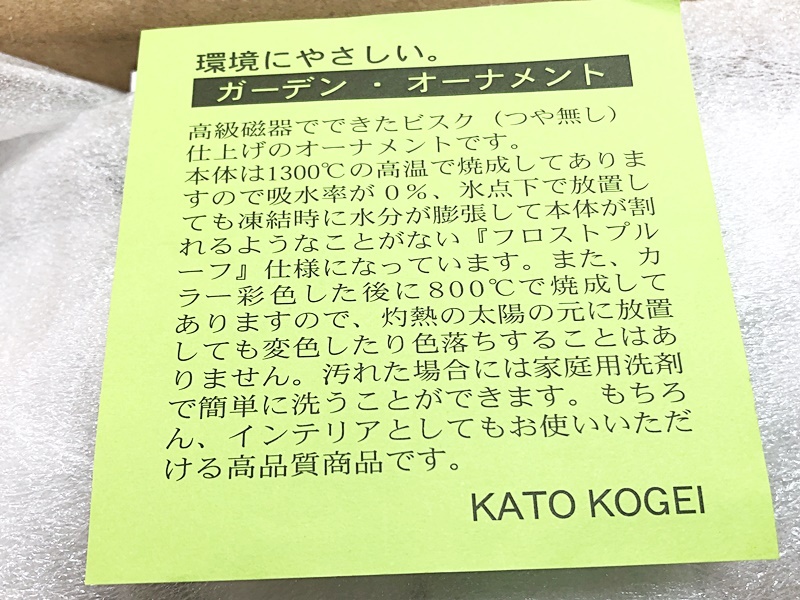 環境にやさしい。
ガーデン・オーナメント
高級磁器でできたビスク（つや無し）
仕上げのオーナメントです。
本体は1300℃の高温で焼成してありま
すので吸水率が０％、氷点下で放置し
ても凍結時に水分が膨張して本体が割
れるようなことがない『フロストプル
ーフ』仕様になっています。また、カ
ラー彩色した後に800℃で焼成して
ありますので、灼熱の太陽の元に放置
しても変色したり色落ちすることはあ
りません。汚れた場合には家庭用洗剤
で簡単に洗うことができます。もちろ
ん、インテリアとしてもお使いいただ
ける高品質商品です。
KATO KOGEI